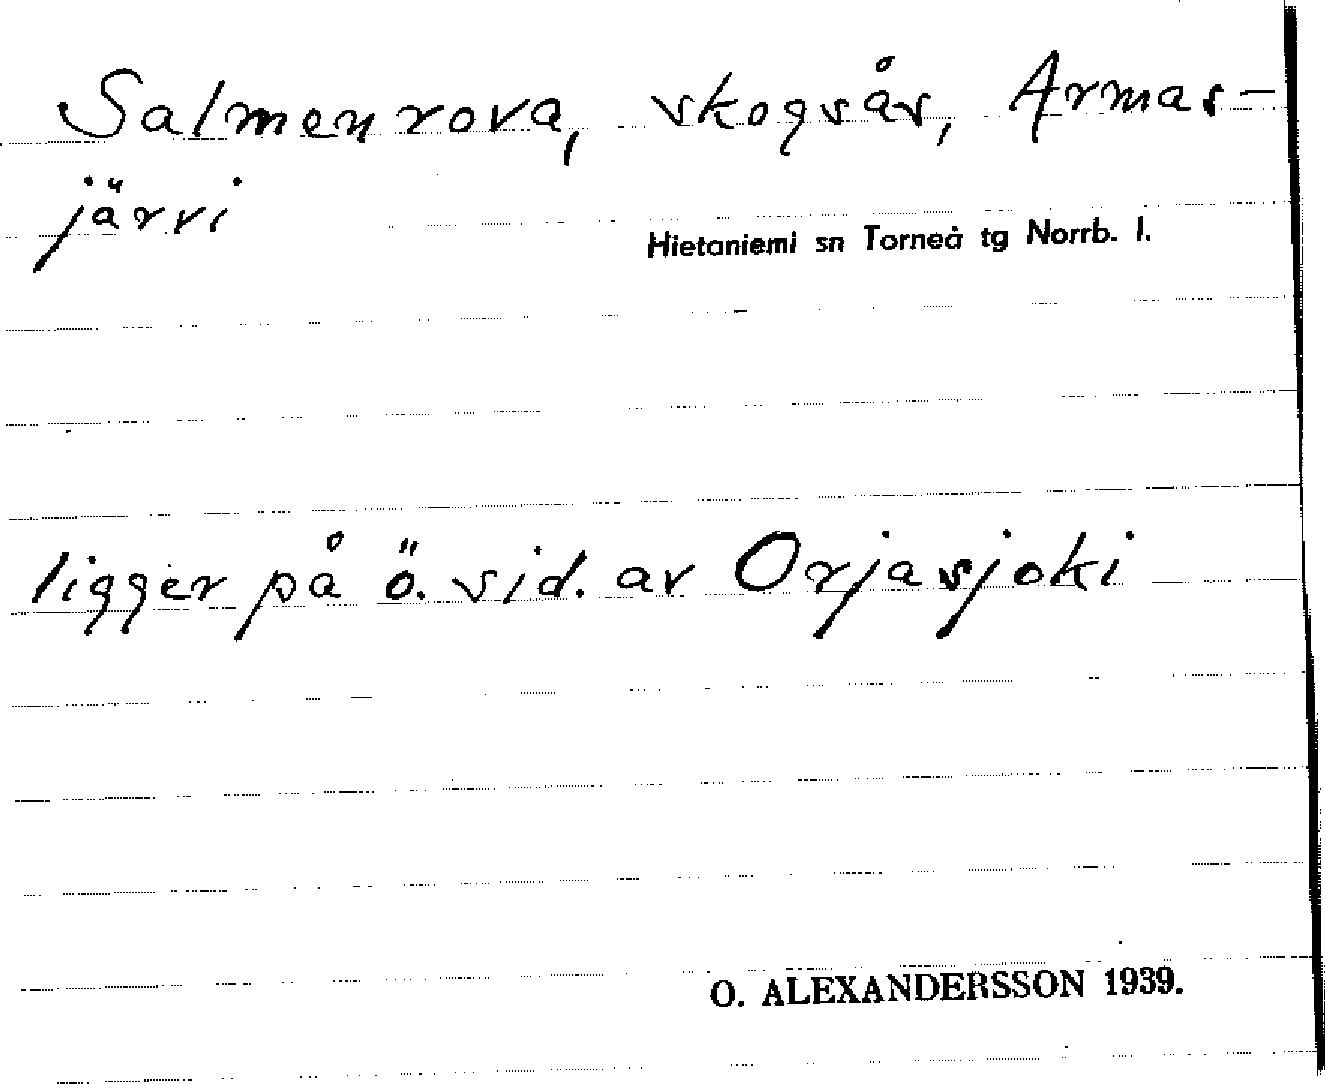 Salmenrova, skogsås, Armas-
järvi
Hietaniemi sn Torneå tg Norrb. l.
ligger på ö. sid. av Orjasjoki
O. ALEXANDERSSON 1939.